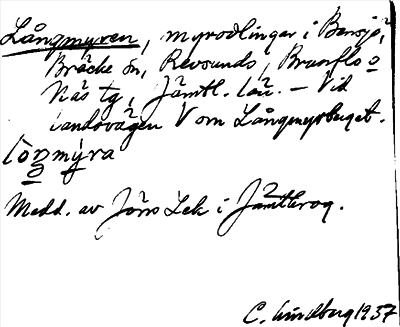 Långmyren, myrodlingar i Bensjö,
Bräcke sn, Revsunds, Brunflo o
Näs tg, Jämtl. län. – Vid
landsvägen V om Långmyrberget.
Medd. av Jöns Lek i Jämtkrog.
C. Lindberg 1937